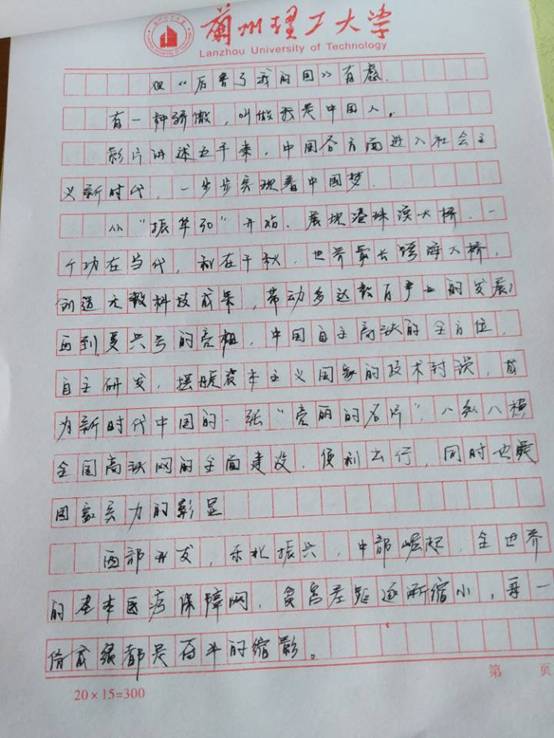 兰州理工大学
Lanzhou University of Technology
《厉害了我的国》有感
有一种骄傲，叫做我是中国人。
影片讲述五年来，中国各方面进入社会主
义新时代，一步步实现着中国梦
从“振华30”开始，展现港珠澳大桥，一
个功在当代，利在千秋，世界最长跨海大桥，
创造无数科技成果，带动多达数百产业的发展；
再到复兴号的亮相，中国自主高铁的全方位
自主研发，摆脱资本主义国家的技术封锁，成
为新时代中国的一张“亮丽的名片”八纵八横
全国高铁网的全面建设，便利出行，同时也是
国家实力的彰显
西部开发，东北振兴，中部崛起，全世界
的基本医疗保障网，贫富差距逐渐缩小，每一
份成绩都是奋斗的缩影。
第 页
20×15=300